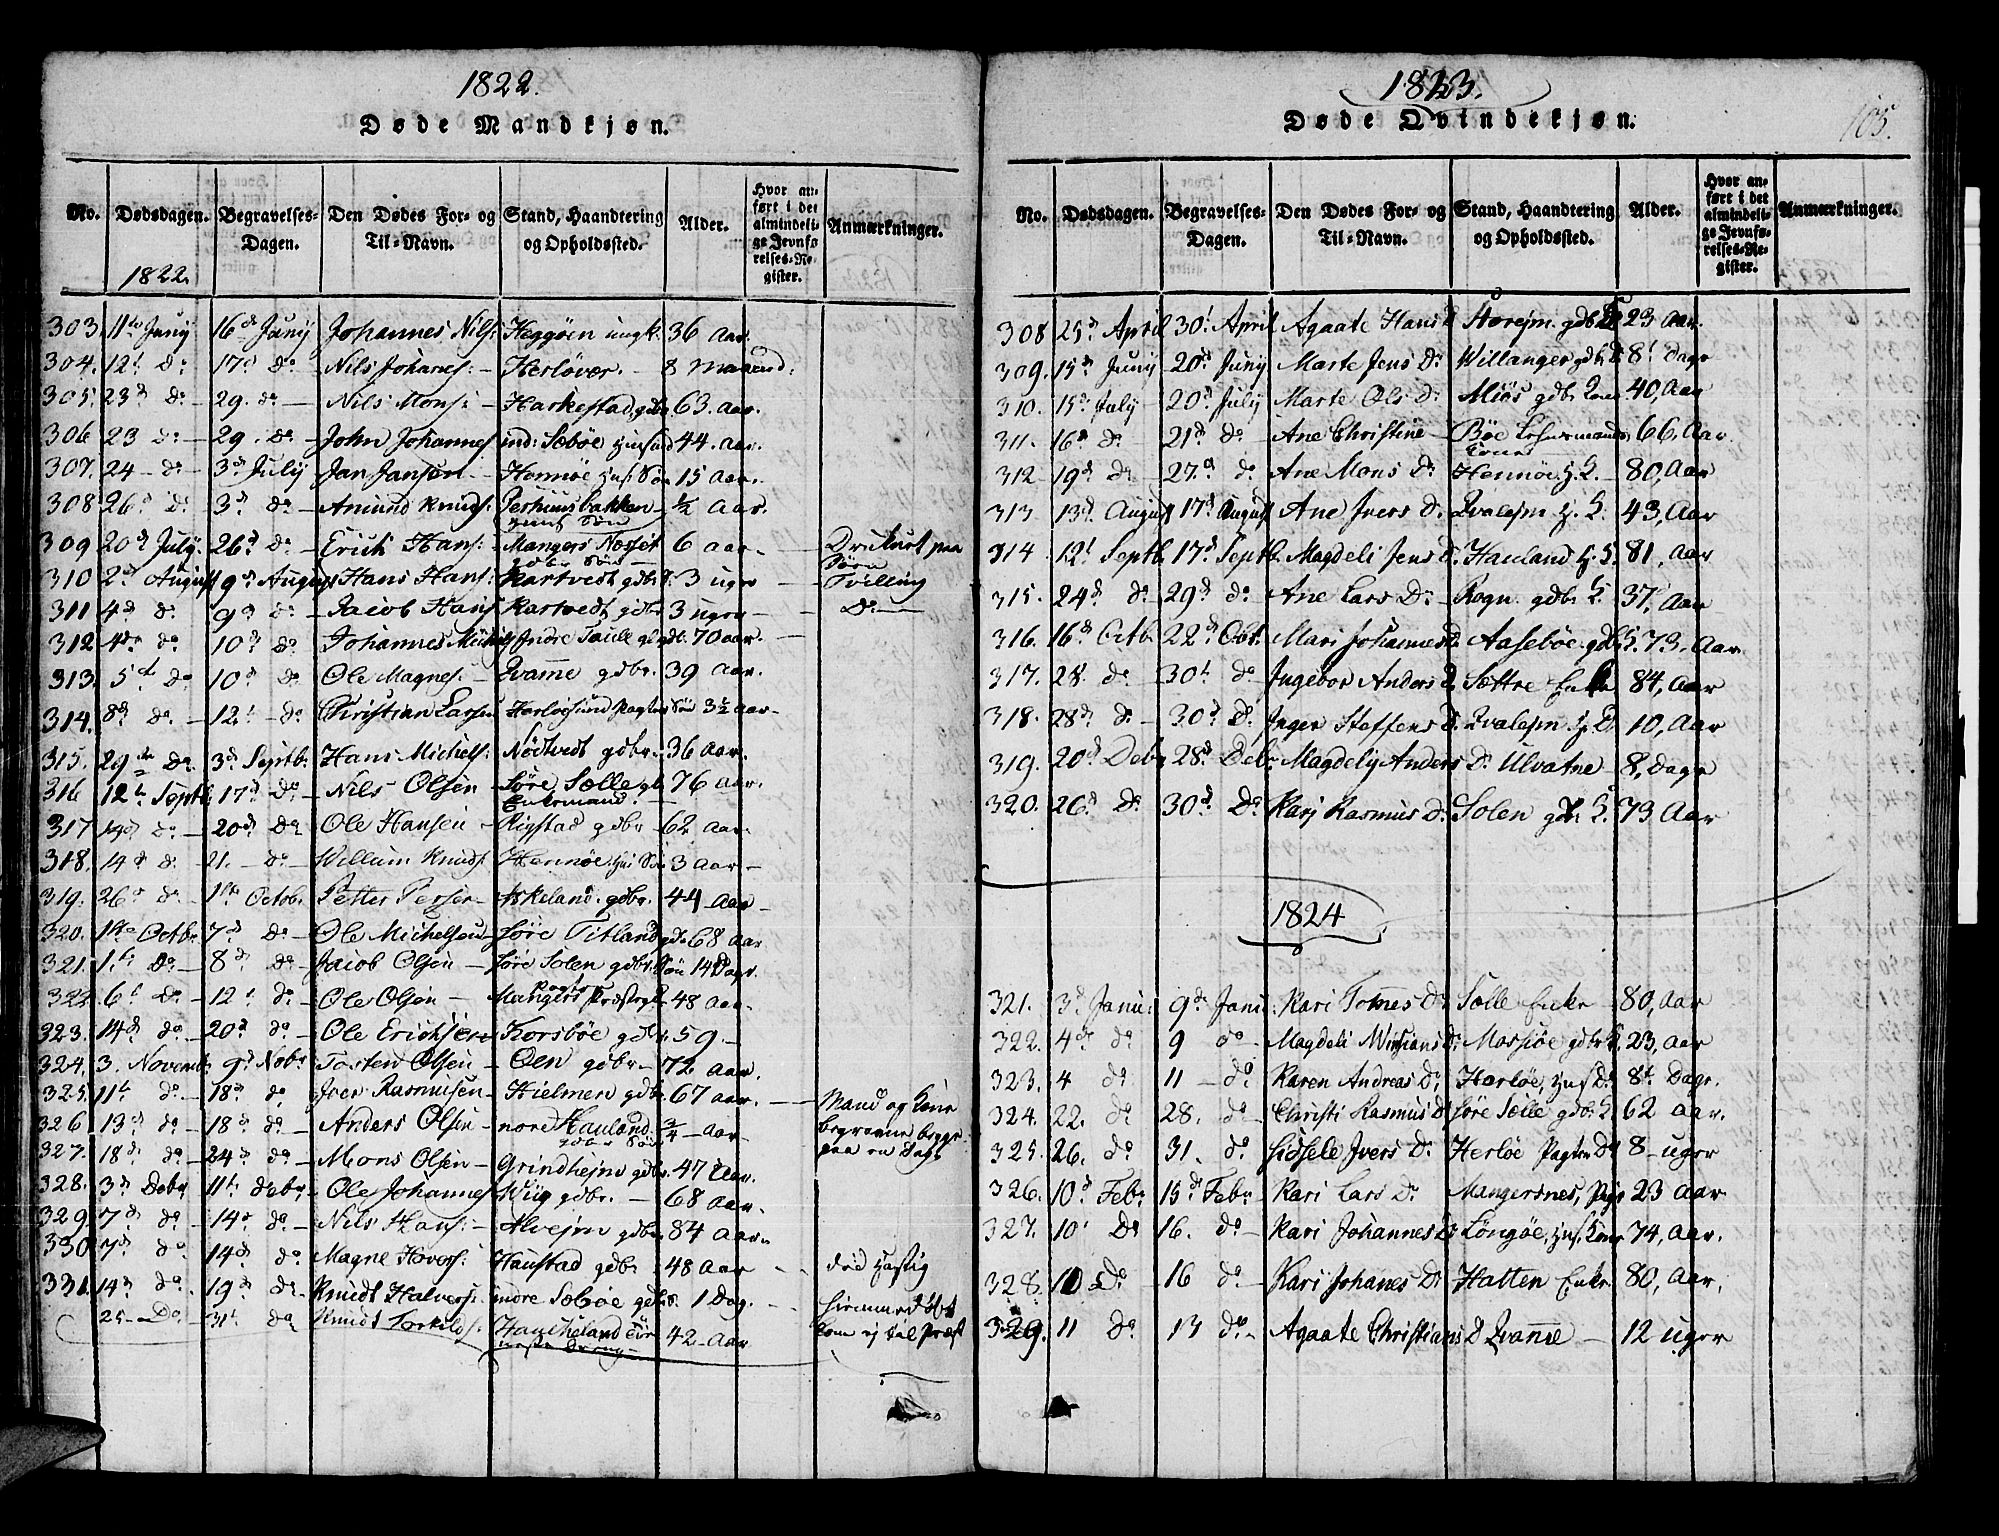 1822.
Døde Mandkjøn.
No. Dødsdagen. Begravelses-Dagen. Den Dødes For- og Til-Navn. Stand, Haandtering og Opholdssted. Alder. Hvor anført i det almindelige Jevnførelses-Register. Anmærkninger.
1822.
303. 11te Juny 16de Juny Johannes Nils: Heggøen ungk: 36 Aar.
304. 12t D: 17d do Nils Johanes: Herløver. 8 Maaned:
305. 23d do 29. do Nils Mons: Harkestad, gdbr 63. Aar.
306 23 do 29. do John Johannes ind: Sæbøe 44. Aar.
307. 24 do 3d July Jan Jansøn Hennøe huus: Søn 15 Aar.
308 26d D: 3d do Amund Knuds: Perhuusbakken huus Søn ½ Aar.
309 20de July. 26d do Erich Hans: Mangers Nossøt gdbr Søn 6 Aar. Druknet paa Søen
310 2d August 9de August Hans Hans: Kartvedt gdbr: 3 uger Tvilling
311 4d do 9d do Jacob Hans Kartvedt gdbr 3 uger do
312 4de do 10d do Johannes Indre gdb. 70 Aar.
313. 5te do 10d do Ole Magnes: Qvamme gdbr. 39 Aar.
314. 8d do 12t do Christian Larsen Herløesund Pagters Søn 3½ Aar
315. 29de do 3d Septb: Hans Michels: Nødtvedt gdbr. 36 Aar.
316 12te Septb. 17d do Nils Olsen Søre Sælle Enkemand. 76 Aar.
317. 14d do 20d do Ole Hansen Rigstad gdbr 62 Aar.
318. 14d do 21. do Willum Knuds: Hennøe. huus Søn 3 Aar
319. 26d do 1ste Octob: Petter Persen Askeland. gdbr. 44 Aar
320. 1ste Octbr 7d do Ole Michelsen Søre Titland gdbr 68 Aar
321. 1ste do 8d do Jacob Olsen Søre Solen gdbr Søn 14 Dage.
322. 6t do 12t do Ole Olsen Mangers Præstegd 48 Aar.
323. 14d do 20d do Ole Erichsen Korsbøe gdbr. 59
324. 3. Novemb. 9d Nobr Tosten Olsen Oen gdbr 72 Aar.
325. 11te do 18d do Iver Rasmusen Hielmen gdbr 67 Aar. Mand og Kone
326 13d do 18d do Anders Olsen nore Hauland gdbr Søn ¾ Aar begravne begge
327. 18d do 24d do Mons Olsen Grindhejm gdbr. 47 Aar. paa en Dag
328. 3d Debr 11te debr Ole Johannes Wiig gdbr. 68 Aar.
329. 7d do 14d do Nils Hans: Alvejm gdbr. 84 Aar.
330. 7d do 14d do Magne Hovers: Haustad gdbr 48 Aar død hastig
331. 14d do 19d do Knudt Halvers: indre Sæbøe gdbr 1 Dag. hiemmedøbt
25 do 31t do Knudt Torkilds: Haucheland 42 Aar kom ej til Præst
1823.
105.
Døde Qvindekjøn.
No. Dødsdagen. Begravelses-Dagen. Den Dødes For- og Til-Navn. Stand, Haandtering og Opholdssted. Alder. Hvor anført i det almindelige Jevnførelses-Register. Anmærkninger.
308 25d April 30t April Agaate Hans D Storejm. gdb: 23 Aar.
309. 15d Juny 20d Juny Marte Jens D: Willanger gdbr: D: 8t Dage
310. 15d July 20d July Marte Ols D: Miøs gdb: Kone 40, Aar
311. 16d do 21d do Ane Christine Bøe Lehnsmands Kone 66, Aar
312 19d do 27d do Ane Mons D: Hennøe. h. K. 80, Aar
313 13d August 17d August Ane Ivers D: Qvalejm h. K. 43, Aar
314 12t Septb 17d Septb. Magdeli Jens D. Hauland h. K. 81, Aar
315. 24d do 29d do Ane Lars D: Rogn. gdb. K. 37, Aar
316. 16d Octb. 22d Obr. Mari Johannes D. Aasebøe gdb K. 73, Aar
317. 28. do 30t do Ingebor Anders D. Sættre Enke 84, Aar
318. 28d do 30d D. Inger Steffens D: Qvalejm h. D. 10, Aar
319. 20d Debr 28d Debr Magdely Anders D: Ulvatne 8, Dage
320. 26d do 30d do Kari Rasmus D. Solen gdb: K. 73 Aar
1824
321. 3d Janu: 9de Janu: Kari Tomes D: Sølle Enke 80, Aar
322. 4de do 9 do Magdeli D: gdbr K. 23, Aar
323. 4 do 11 do Karen Andreas D: Herløe, huus D: 8t Dage.
324. 22. do 28. do Christi Rasmus D. Søre Sælle gdb. K. 62 Aar.
325. 26. do 31. do Sidsele Ivers D: Herløe Pagters D: 8 uger
326. 10d Feb: 15d Feb: Kari Lars D: Mangersnes, 23 Aar
327. 10' do 16. do Kari Johannes D Longøe, huus. Kone 74, Aar.
328. 10 do 16 do Kari Johanes D: Hatten Enke 80, Aar,
329. 11 do 17 do Agaate Christians D Qvamme 12 uger